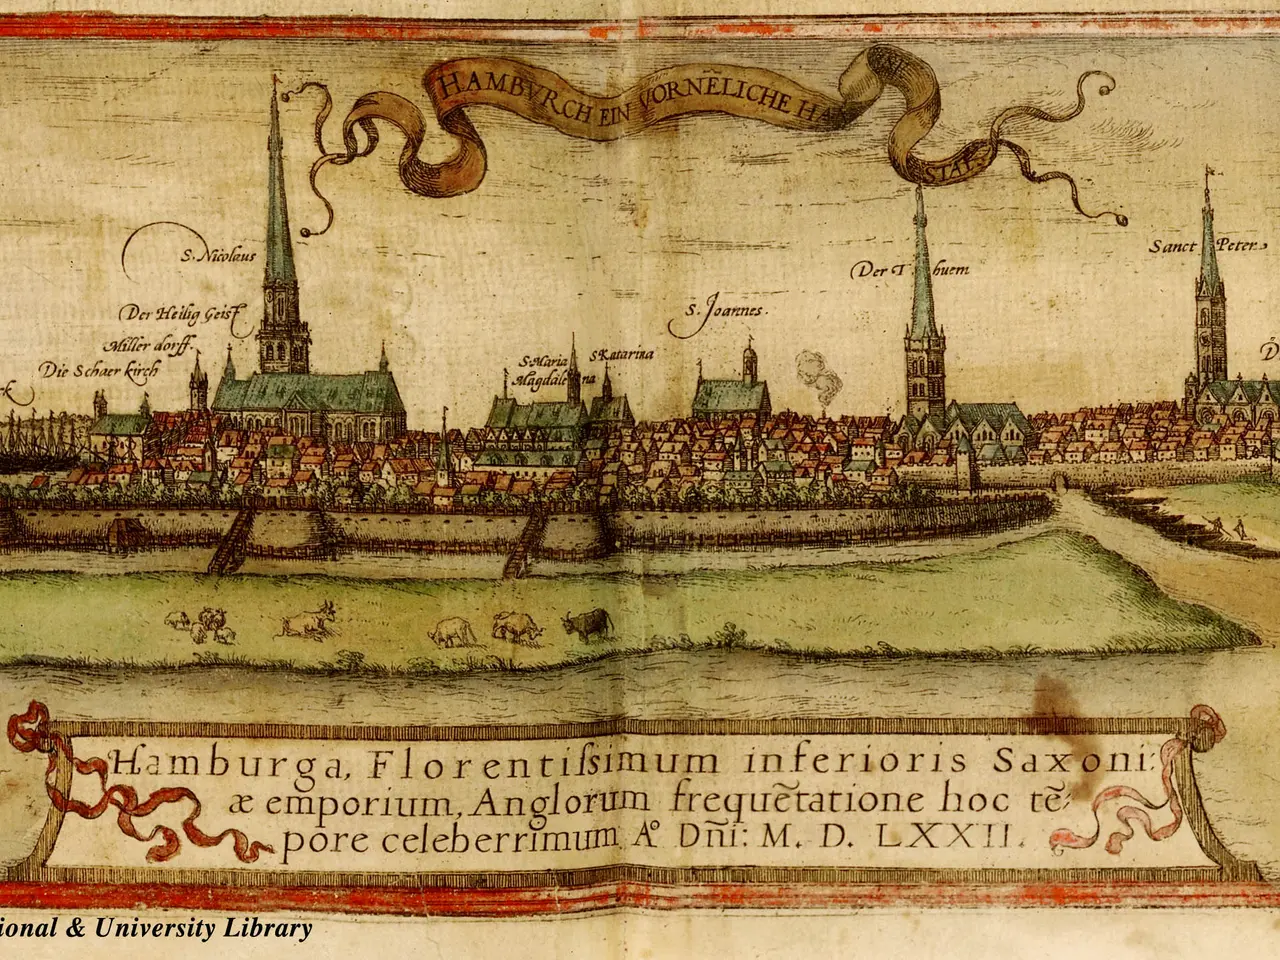 HAMBVRCH EIN VORNẼLICHE HA
STAT
S. Nicolaus
Sanct Peter
Der Thuem
Der Heilig Geist
S. Joannes.
Miller dorff.
S Maria Magdalena
S Katarina
Die Schaer kirch
Hamburga, Florentiſsimum inferioris Saxoni:
æ emporium, Anglorum frequẽtatione hoc tẽ:
pore celeberrimum, Aº Dñi: M. D. LXXII.
ional & University Library